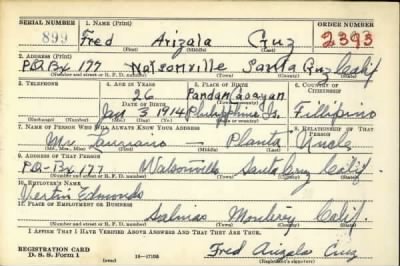 SERIAL NUMBER 1. NAME (Print) ORDER NUMBER
899 Fred Arizala Cruz 2393
(First) (Middle) (Last)
2. ADDRESS (Print)
P.O. Bx 177 Watsonville Santa Cruz Calif
(Number and street or R. F. D. number) (Town) (County) (State)
3. TELEPHONE 4. AGE IN YEARS 5. PLACE OF BIRTH 6. COUNTRY OF CITIZENSHIP
26 Pandan Caoayan
DATE OF BIRTH (Town or county)
Jan 3 1914 Philippine Is. Fillipino
(Exchange) (Number) (Mo.) (Day) (Yr.) (State or country)
7. NAME OF PERSON WHO WILL ALWAYS KNOW YOUR ADDRESS 8. RELATIONSHIP OF THAT PERSON
Mr. Planta Uncle
(Mr., Mrs., Miss) (First) (Middle) (Last)
9. ADDRESS OF THAT PERSON
P.O. Bx 177 Watsonville Santa Cruz Calif.
(Number and street or R. F. D. number) (Town) (County) (State)
10. EMPLOYER'S NAME
Edmonds
11. PLACE OF EMPLOYMENT OR BUSINESS
Salinas Monterey Calif.
(Number and street or R. F. D. number) (Town) (County) (State)
I AFFIRM THAT I HAVE VERIFIED ABOVE ANSWERS AND THAT THEY ARE TRUE.
REGISTRATION CARD
D. S. S. Form 1 (over) 16—17105 Fred Arizala Cruz
(Registrant's signature)